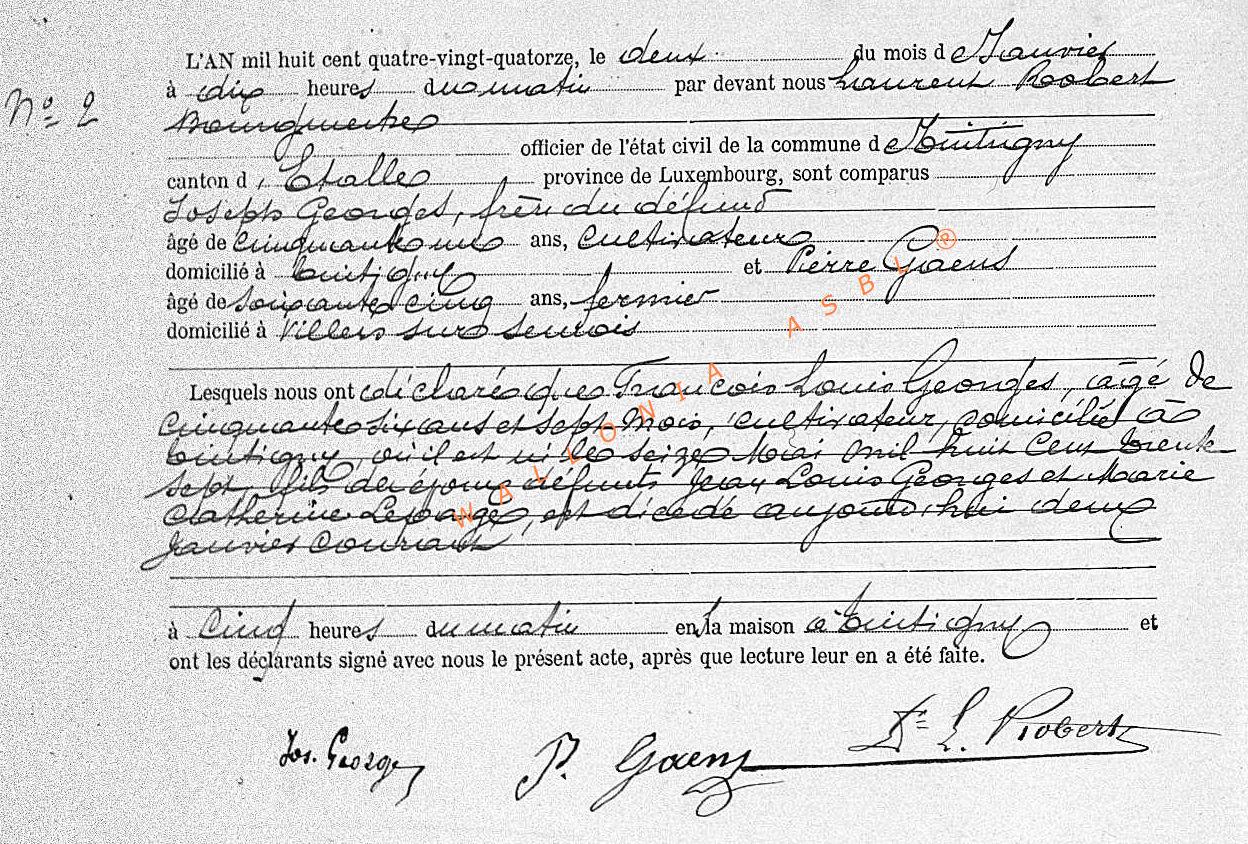 L'AN mil huit cent quatre-vingt-quatorze, le deux du mois de Janvier
N° 2
à dix heures du matin par devant nous Laurent Robert
Bourgmestre
officier de l'état civil de la commune de Tintigny
canton d'Etalle province de Luxembourg, sont comparus
Joseph Georges, frère du défunt
âgé de cinquante un ans, cultivateur
domicilié à Tintigny et Pierre Goens
âgé de soixante cinq ans, fermier
domicilié à Villers sur Semois
Lesquels nous ont déclaré que Francois Louis Georges, âgé de
cinquante six ans et sept mois, cultivateur, domicilié à
Tintigny, où il est né le seize Mai mil huit cent trente
sept, fils des époux défunts Jean Louis Georges et Marie
Catherine Lepage, est décédé aujourd'hui deux
Janvier courant,
à cinq heures du matin en la maison à Tintigny et
ont les déclarants signé avec nous le présent acte, après que lecture leur en a été faite.
Jos. Georges P. Goens L. Robert
WALLONIA ASBL ®